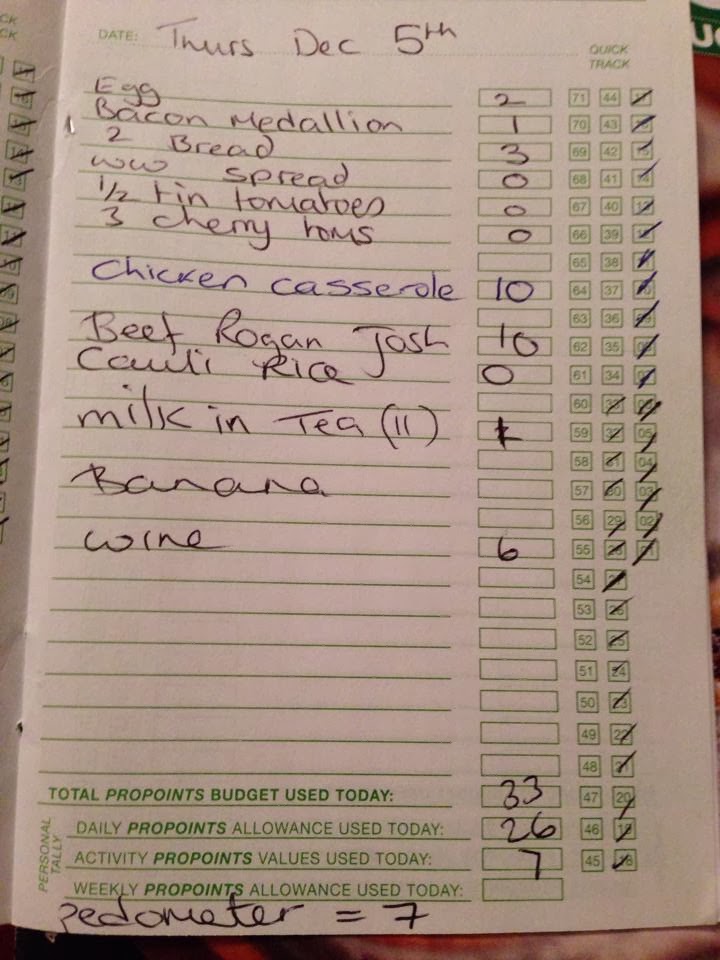 DATE: Thurs Dec 5th
QUICK TRACK
Egg 2 71 44 17
Bacon Medallion 1 70 43 16
2 Bread 3 69 42 15
ww spread 0 68 41 14
1/2 tin tomatoes 0 67 40 13
3 cherry toms 0 66 39 12
65 38 11
Chicken casserole 10 64 37 10
63 36 09
Beef Rogan Josh 10 62 35 08
Cauli Rice 0 61 34 07
60 33 06
milk in Tea (11) 1 59 32 05
58 31 04
Banana 57 30 03
56 29 02
wine 6 55 28 01
54 27
53 26
52 25
51 24
50 23
49 22
48 21
TOTAL PROPOINTS BUDGET USED TODAY: 33 47 20
PERSONAL TALLY
DAILY PROPOINTS ALLOWANCE USED TODAY: 26 46 19
ACTIVITY PROPOINTS VALUES USED TODAY: 7 45 18
WEEKLY PROPOINTS ALLOWANCE USED TODAY:
pedometer = 7